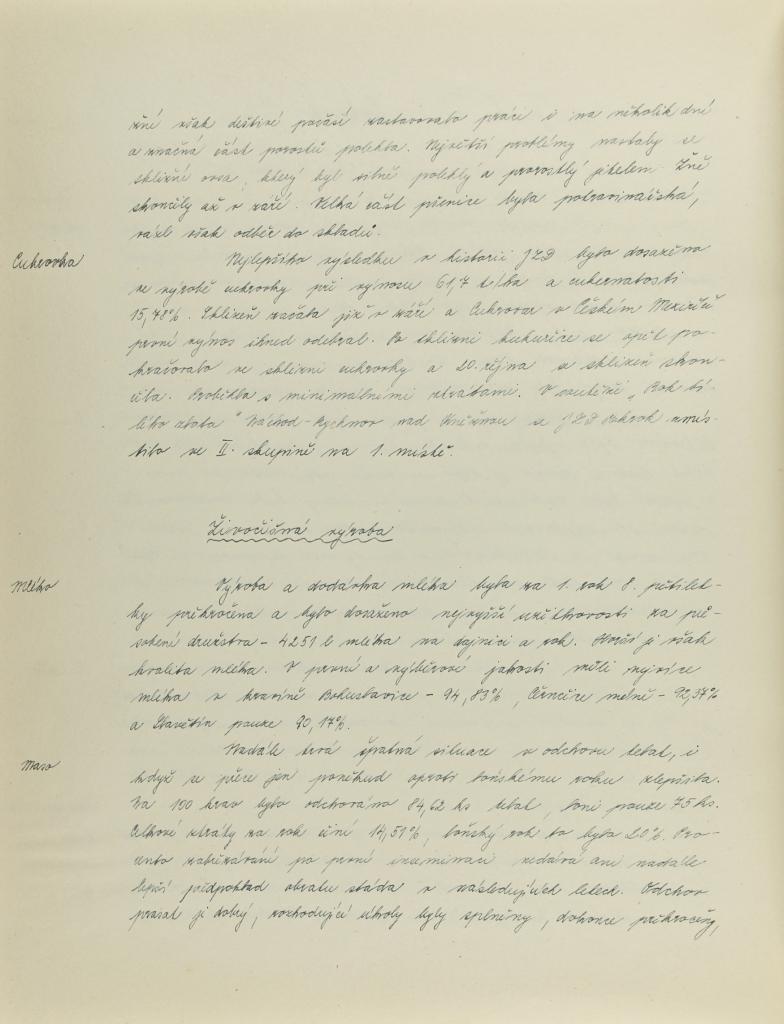 žně však deštivé počasí zastavovalo práci i na několik dní
a značná část porostů polehla. Největší problémy nastaly se
sklizní ovsa, který byl silně polehlý a prorostlý jetelem. Žně
skončily až v září. Velká část pšenice byla potravinářská,
vázl však odběr do skladů.
Cukrovka
Nejlepšího výsledku v historii JZD bylo dosaženo
ve výrobě cukrovky při výnosu 61,7 t/ha a cukernatosti
15,78%. Sklizeň začala již v září a Cukrovar v Českém Meziříčí
první výnos ihned odebral. Po sklizni kukuřice se opět po-
kračovalo ve sklizni cukrovky a 20. října se sklizeň skon-
čila. Proběhla s minimálními ztrátami. V soutěži "Rok bí-
lého zlata" Náchod-Rychnov nad Kněžnou se JZD Rokrok umís-
tilo ve II. skupině na 1. místě.
Živočišná výroba
Mléko
Výroba a dodávka mléka byla za 1. rok 8. pětilet-
ky překročena a bylo dosaženo nejvyšší užitkovosti za pů-
sobení družstva - 4251 l mléka na dojnici a rok. Horší je však
kvalita mléka. V první a výběrové jakosti měli nejvíce
mléka v kravíně Bohuslavice - 94,83%, Černčice méně - 92,37%
a Slavětín pouze 90,17%.
Maso
Nadále trvá špatná situace v odchovu telat, i
když se přece jen poněkud oproti loňskému roku zlepšila.
Na 100 krav bylo odchováno 84,62 ks telat, loni pouze 75 ks.
Celkové ztráty za rok činí 14,51%, loňský rok to bylo 20%. Pro-
cento zabřezávání po první inseminaci nedává ani nadále
lepší předpoklad obratu stáda v následujících letech. Odchov
prasat je dobrý, rozhodující úkoly byly splněny, dokonce překročeny,